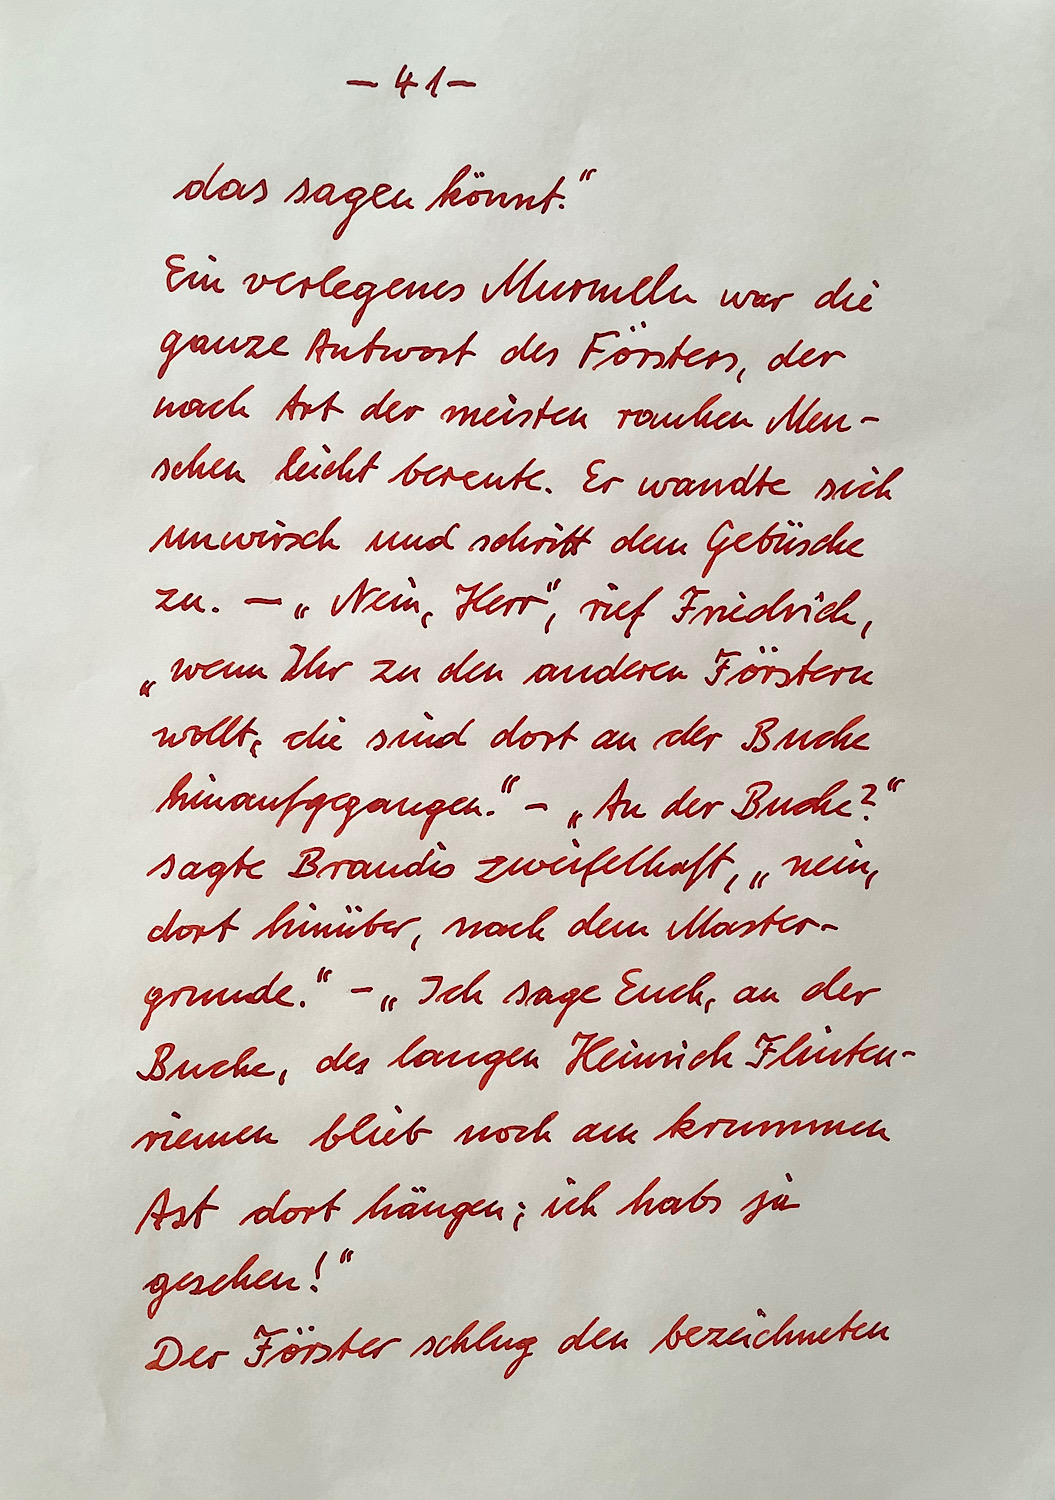 – 41 –
das sagen könnt.“
Ein verlegenes Murmeln war die
ganze Antwort des Försters, der
nach Art der meisten rauhen Men-
schen leicht bereute. Er wandte sich
unwirsch und schritt dem Gebüsche
zu. — „Nein, Herr“, rief Friedrich,
„wenn Ihr zu den anderen Förstern
wollt, die sind dort an der Buche
hinaufgegangen.“ – „An der Buche?“
sagte Brandis zweifelhaft, „nein,
dort hinüber, nach dem Master-
grunde.“ – „Ich sage Euch, an der
Buche, des langen Heinrich Flinten-
riemen blieb noch am krummen
Ast dort hängen; ich habs ja
gesehen!“
Der Förster schlug den bezeichneten